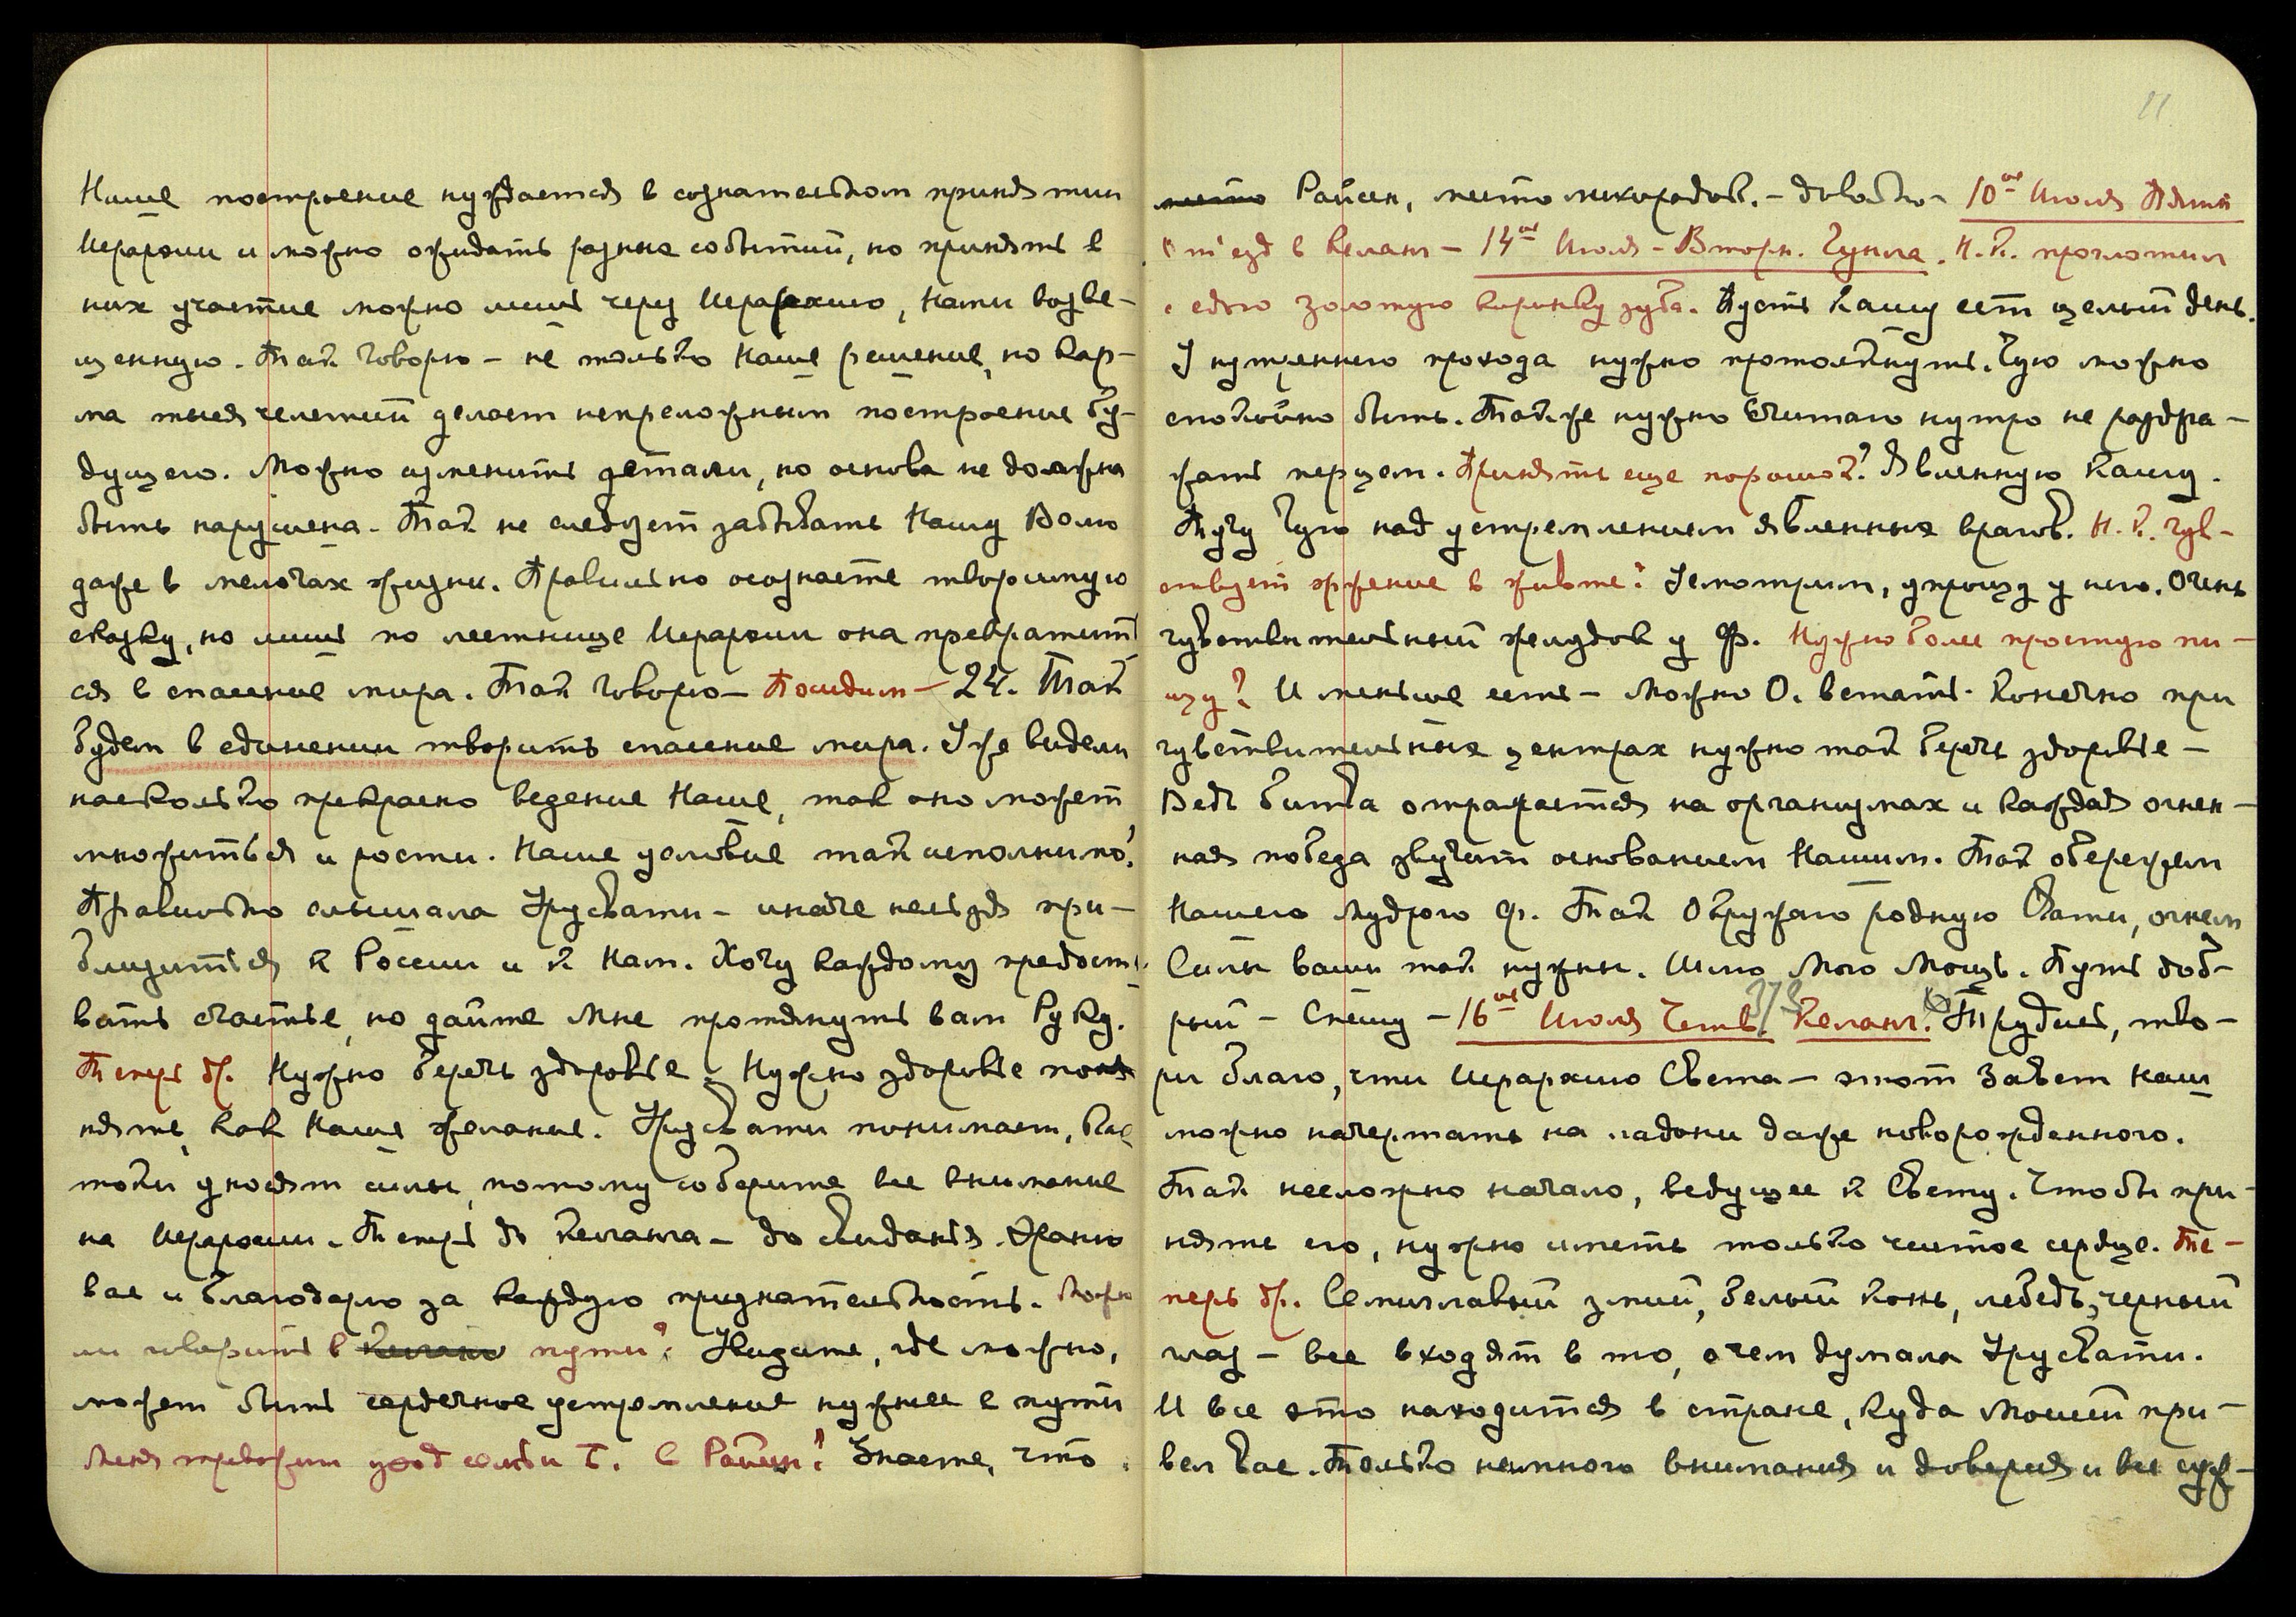 Наше построение нуждается в сознательном приня тии
Иерархии и можно ожидать разных событий, но принять в
них участие можно лишь через Иерархию, Нами возве-
щенную. Так Говорю – не только Наше решение, но Кар-
ма тысячелетий делает непреложным построение бу-
дущего. Можно изменить детали, но основа не должна
быть нарушена. Так не следует забывать Нашу Волю
даже в мелочах жизни. Правильно осознаете творимую
сказку, но лишь по лестнице Иерархии она превратит
ся в спасение мира. Так Говорю – Посидим – 24. Так
будем в единении творить спасение мира. Уже видели
насколько прекрасно ведение Наше, так оно может
множиться и расти. Наше условие так исполнимо!
Правильно слышала Урусвати – иначе нельзя при-
близиться к России и к Нам. Хочу каждому предост
вать счастье, но дайте Мне протянуть вам Руку.
Теперь др. Нужно беречь здоровье. Нужно здоровье по
нять, как Наше желание. Урусвати понимает, как
токи уносят силы, потому соберите все внимание
на Иерархии. Теперь до Келанга – до свиданья. Храню
вас и благодарю за каждую признательность. Можно
ли говорить в Келанг пути? Увидите, где можно,
может быть сердечное устремление нужнее в пути
Меня тревожит уход семьи Т. в Райсен? Знаете, что
место Райсен, место лихорадок. – довольно – 10ое Июля Пятн
От'езд в Келанг – 14ое Июля – Вторн. Гундла. Н.К. проглотил
с едою золотую коронку зуба. Пусть кашу ест целый день.
У нутреннего прохода нужно протолкнуть. Чую можно
спокойно быть. Также нужно Считаю нутро не раздра-
жать перцем. Принять еще порошок? Явленную кашу.
Тучу Чую над устремлением явленных врагов. Н.К. чув-
ствует жжение в животе? Усмотрим, у него. Очень
чувствительный желудок у Ф. Нужно более простую пи-
щу? И меньше есть – Можно О. встать. Конечно при
чувствительных центрах нужно так беречь здоровье –
Ведь битва отражается на организмах и каждая огнен-
ная победа звучит основанием Нашим. Так обережем
Нашего Мудрого Ф. Так Окружаю родную Свати, огнем
Силы ваши так нужны. Шлю Мою Мощь. Путь доб-
рый – Спешу – 16ое Июля Четв. 373 Келанг. Трудись, тво-
ри благо, чти Иерархию Света – этот Завет Наш
можно начертать на ладони даже новорожденного.
Так несложно начало, ведущее к Свету. Чтобы при-
нять его, нужно иметь только чистое сердце. Те-
перь др. Семиглавый змий, белый конь, лебедь, черный
глаз – все входят в то, о чем думала Урусвати.
И все это находится в стране, куда Моисей при-
вел вас. Только немного внимания и доверия и все суж-